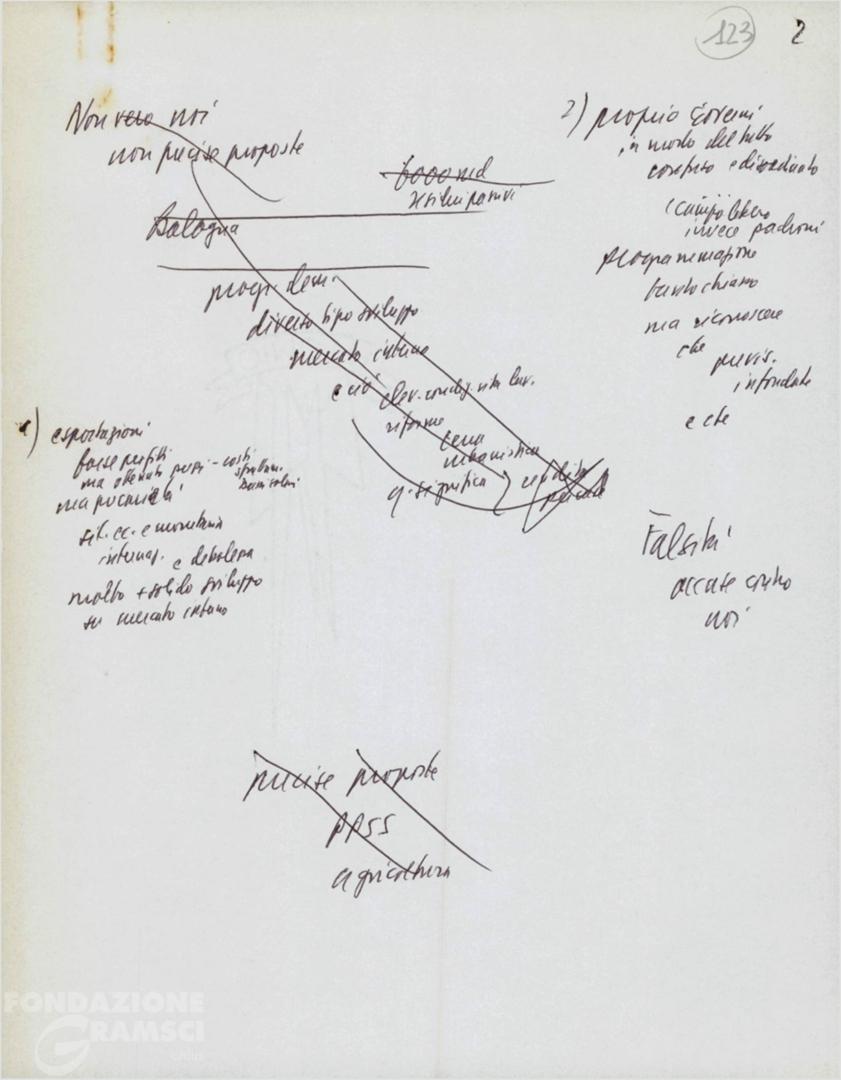 123 2
Non vero noi
non precise proposte
6000 md
Bologna
progr. dem.
diverso tipo sviluppo
mercato interno
e ciò
elev. condiz. vita lav.
riforme
casa
urbanistica
q. significa
rendita
1) esportazioni
forse profitti
ma ottenuti
costi
ma precarietà
sit. ec. e monetaria
internaz. e debolezza
molto + solido sviluppo
su mercato interno
2) proprio Governi
in modo del tutto
confuso e disordinato
campo libero
invece padroni
Programmazione
tanto chiasso
ma riconoscere
che
previs.
infondate
e che
Falsità
accuse contro
noi
precise proposte
PPSS
agricoltura
FONDAZIONE
GRAMSCI
onlus